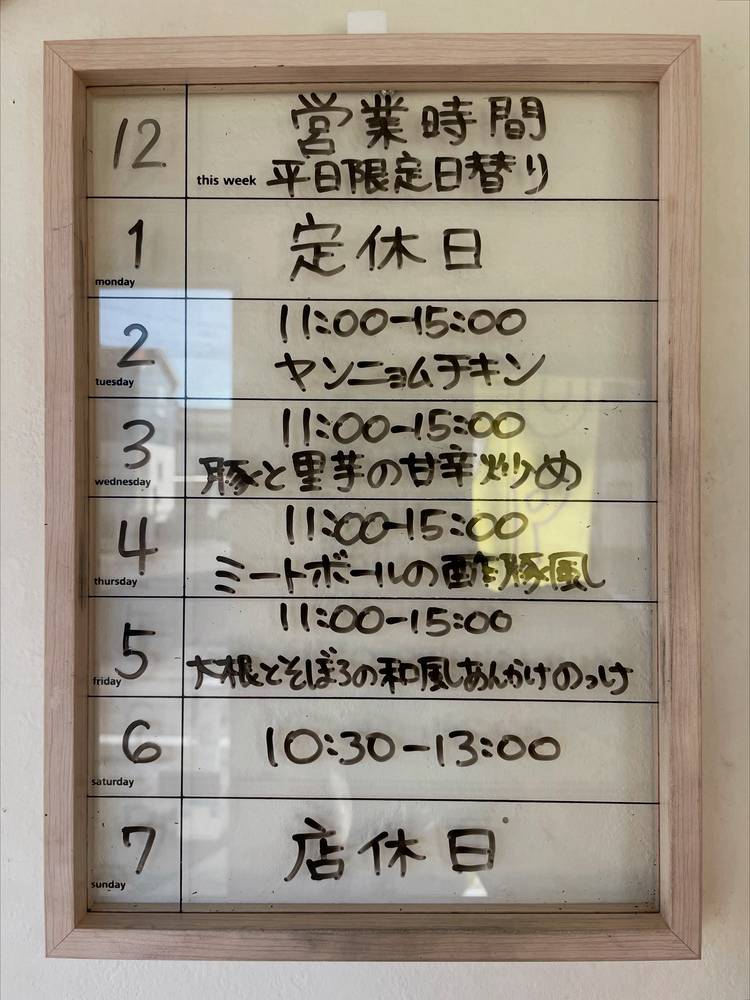 12 営業時間
this week 平日限定日替り
1 定休日
monday
11:00-15:00
2 ヤンニョムチキン
tuesday
11:00-15:00
3 豚と里芋の甘辛炒め
wednesday
11:00-15:00
4 ミートボールの酢豚風
thursday
11:00-15:00
5 大根とそぼろの和風あんかけのっけ
friday
6 10:30-13:00
saturday
7 店休日
sunday